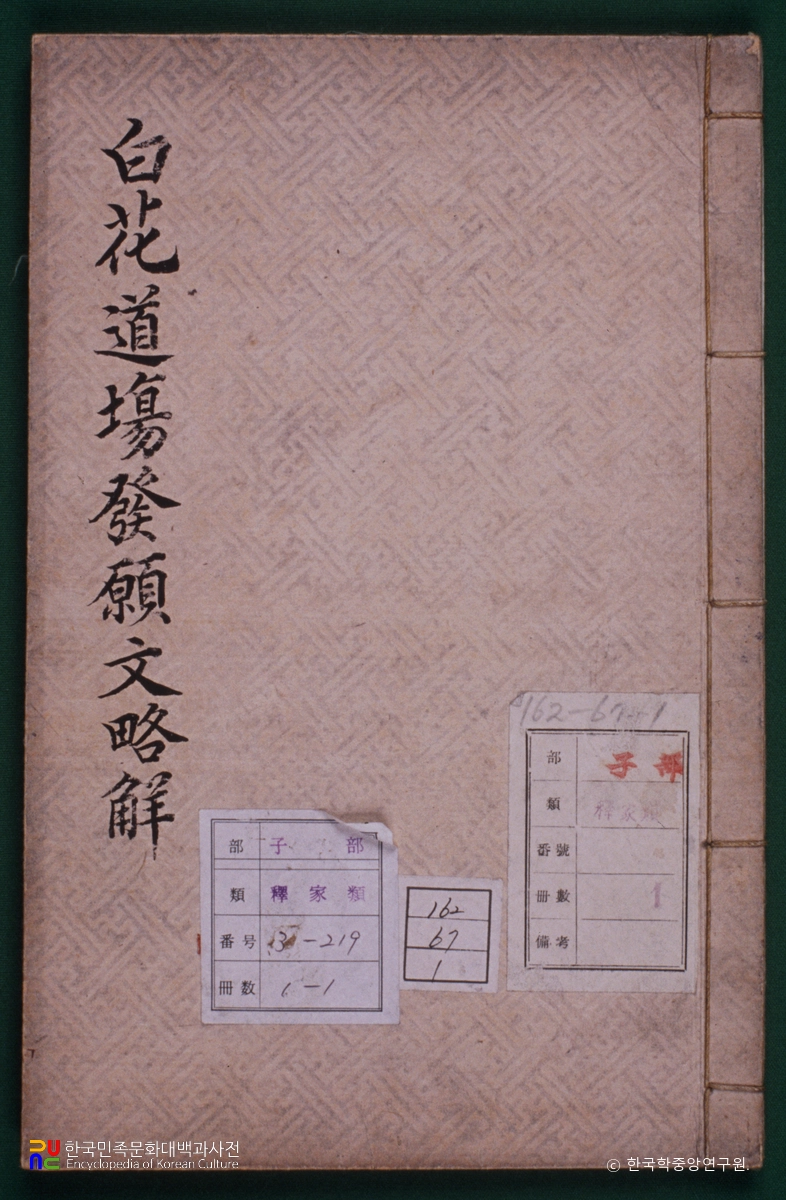 白花道場發願文略解
部 子 部
類 釋家類
番号 3-219
冊数 1-1
162
67
1
162-67-1
部 子部
類 釋家類
番號
冊數 1
備考
한국민족문화대백과사전
Encyclopedia of Korean Culture
© 한국학중앙연구원.